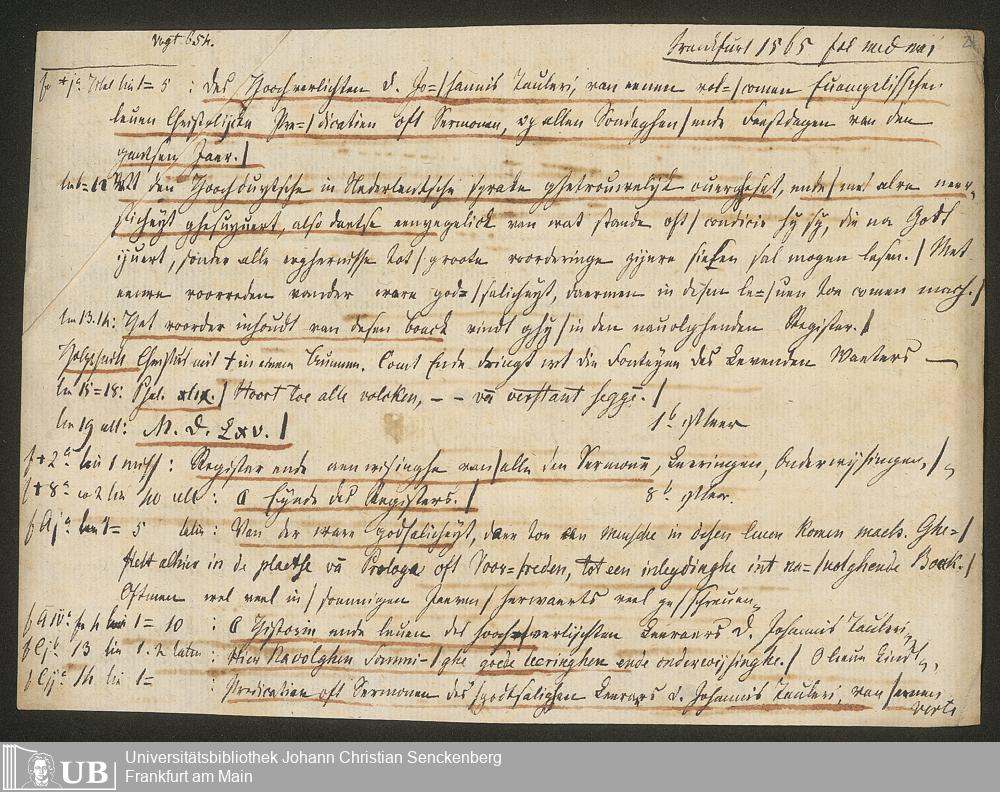 Vogt 654.
Frankfurt 1565
Titel lin 1 = 5 : Des Hoochverlichten d. Jo=/hannis Tauleri, van eenen vol=/comen Euangelisschen
leuen Christelijcke Pre=/dicatien oft Sermonen, op allen Sondaghen/ende Feestdagen van den
gantsen Jaer./
wt den Hoochduytsche in Nederlantsche sprake ghetrouwelijck ouerghesat, ende/met alre neer,
sticheyt ghesuyuert, also datse eenyegelick van wat stande oft/condicie hy sy, die na Godt
ijuert, sonder alle erghernisse tot/groote voorderinge zijnre sielen sal mogen lesen./Met
eenre voorreden vander ware god=/salicheyt, daermen in desen le=/uen toe comen mach./
lin 13.14: Het voorder inhoudt van desen boeck vindt ghy/in den nauolghenden Register./
Holzschnitt Christus mit † in einem Brunnen. Comt Ende drinct wt die Fonteyne des Levenden Waeters —
lin 15=18: Psal. xlix./Hoort toe alle volcken, – – vā verstant segge./
lin 19 ult: M. D. Lxv./ 1b ist leer
f * 2a lin 1 : Register ende aenwisinghe van/alle den Sermonē, Leeringen, Onderwysingen,/
f * 8a co 2 lin 40 ult : ¶ Eynde des Registers./ 8b ist leer.
f Aja lin 1= 5 : Van der ware godsalicheyt, daer toe een mensche in desen leuen komen mach. Ghe=/
stelt alhier in de plaetse vā Prologe oft Voor=/reden, tot een inleydinghe int na=/volghende Boeck./
Oftmen wel veel in/sommigen Jaeren/herwaerts veel ge/schreuen,
10 : ¶ Historie ende leuen des hooch/verlijchten Leeraers D. Johannis Tauleri
13 lin 1. 2 : Hier Navolghen Sommi-/ghe goede leeringhen ende onderwysinghe./O lieue kindt,
14 lin 1= : Predicatien oft Sermonen des/godtsalighen Leerars d. Johannis Tauleri, van/eenen
verte
UB
Universitätsbibliothek Johann Christian Senckenberg
Frankfurt am Main